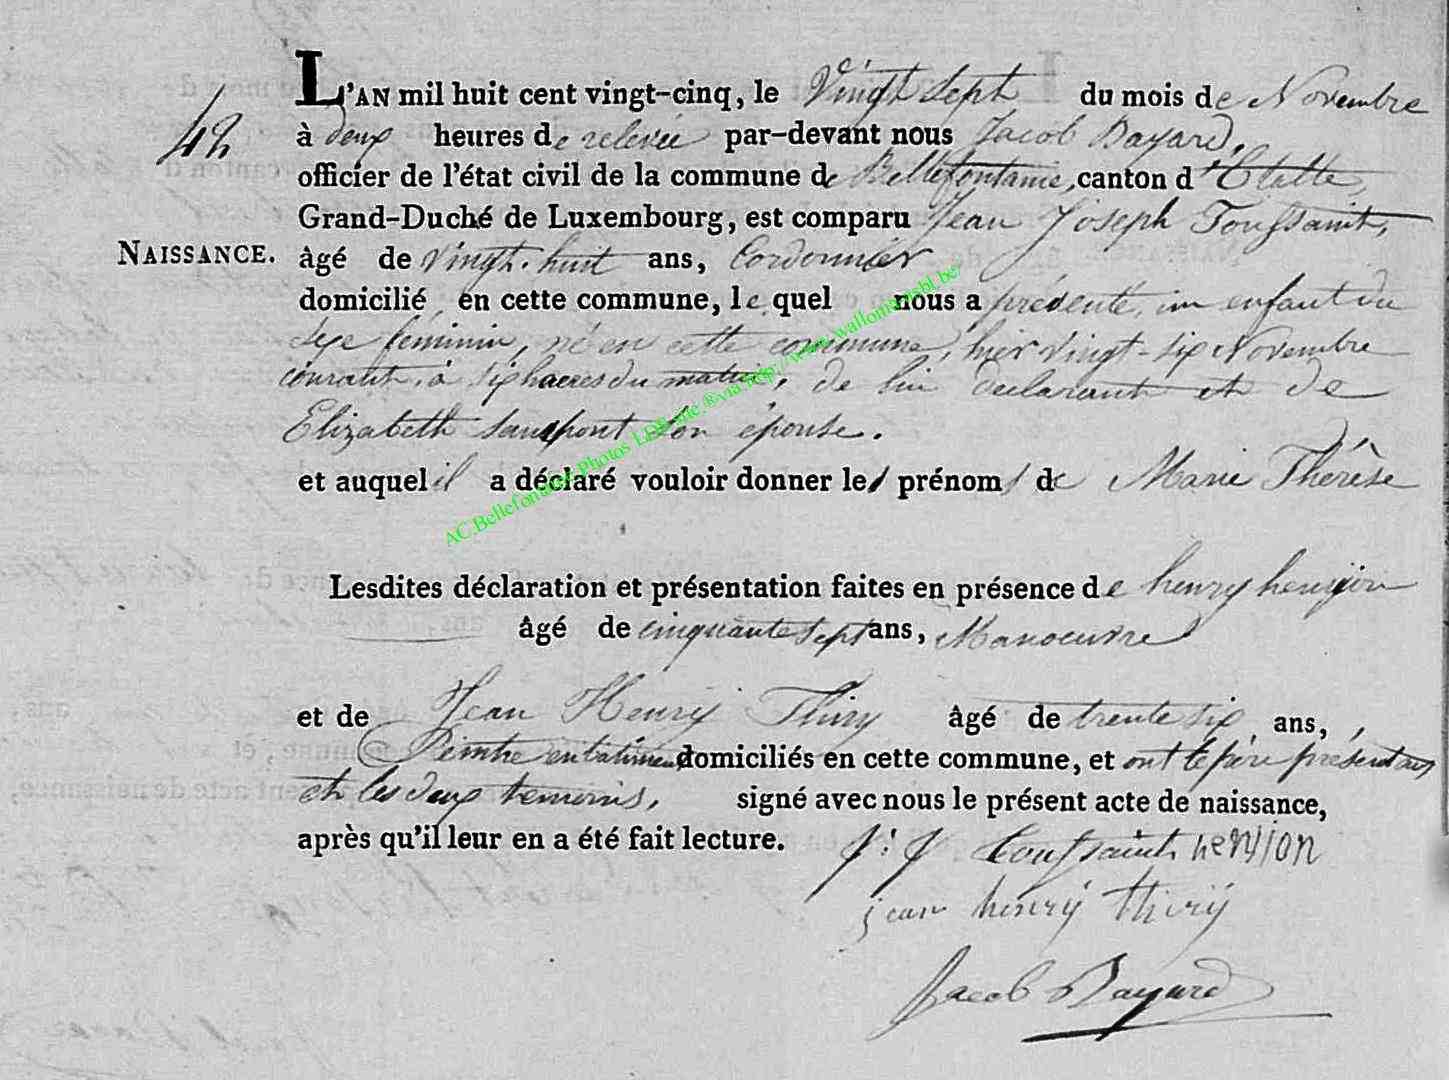 L'AN mil huit cent vingt-cinq, le Vingt sept du mois de Novembre
42
à deux heures de relevée par-devant nous Jacob Bayard,
officier de l'état civil de la commune de Bellefontaine, canton d'Etalle,
Grand-Duché de Luxembourg, est comparu Jean Joseph Toussaint,
NAISSANCE.
âgé de vingt-huit ans, Cordonnier
domicilié en cette commune, lequel nous a présenté, un enfant du
sexe féminin, né en cette commune, hier vingt-six Novembre
courant, à six heures du matin, de lui déclarant et de
Elizabeth son épouse.
et auquel il a déclaré vouloir donner les prénoms de Marie Thérèse
AC.Bellefontaine Photos LDE inc.®via http://www.wallonia-asbl.be/
Lesdites déclaration et présentation faites en présence de henry hension
âgé de cinquante sept ans, Manoeuvre
et de Jean Henry Thiry âgé de trente six ans,
Peintre en batiment domiciliés en cette commune, et ont le père présentant
et les deux temoins, signé avec nous le présent acte de naissance,
après qu'il leur en a été fait lecture.
j: j Toussaint hension
jean henrÿ thirÿ
Jacob Bayard